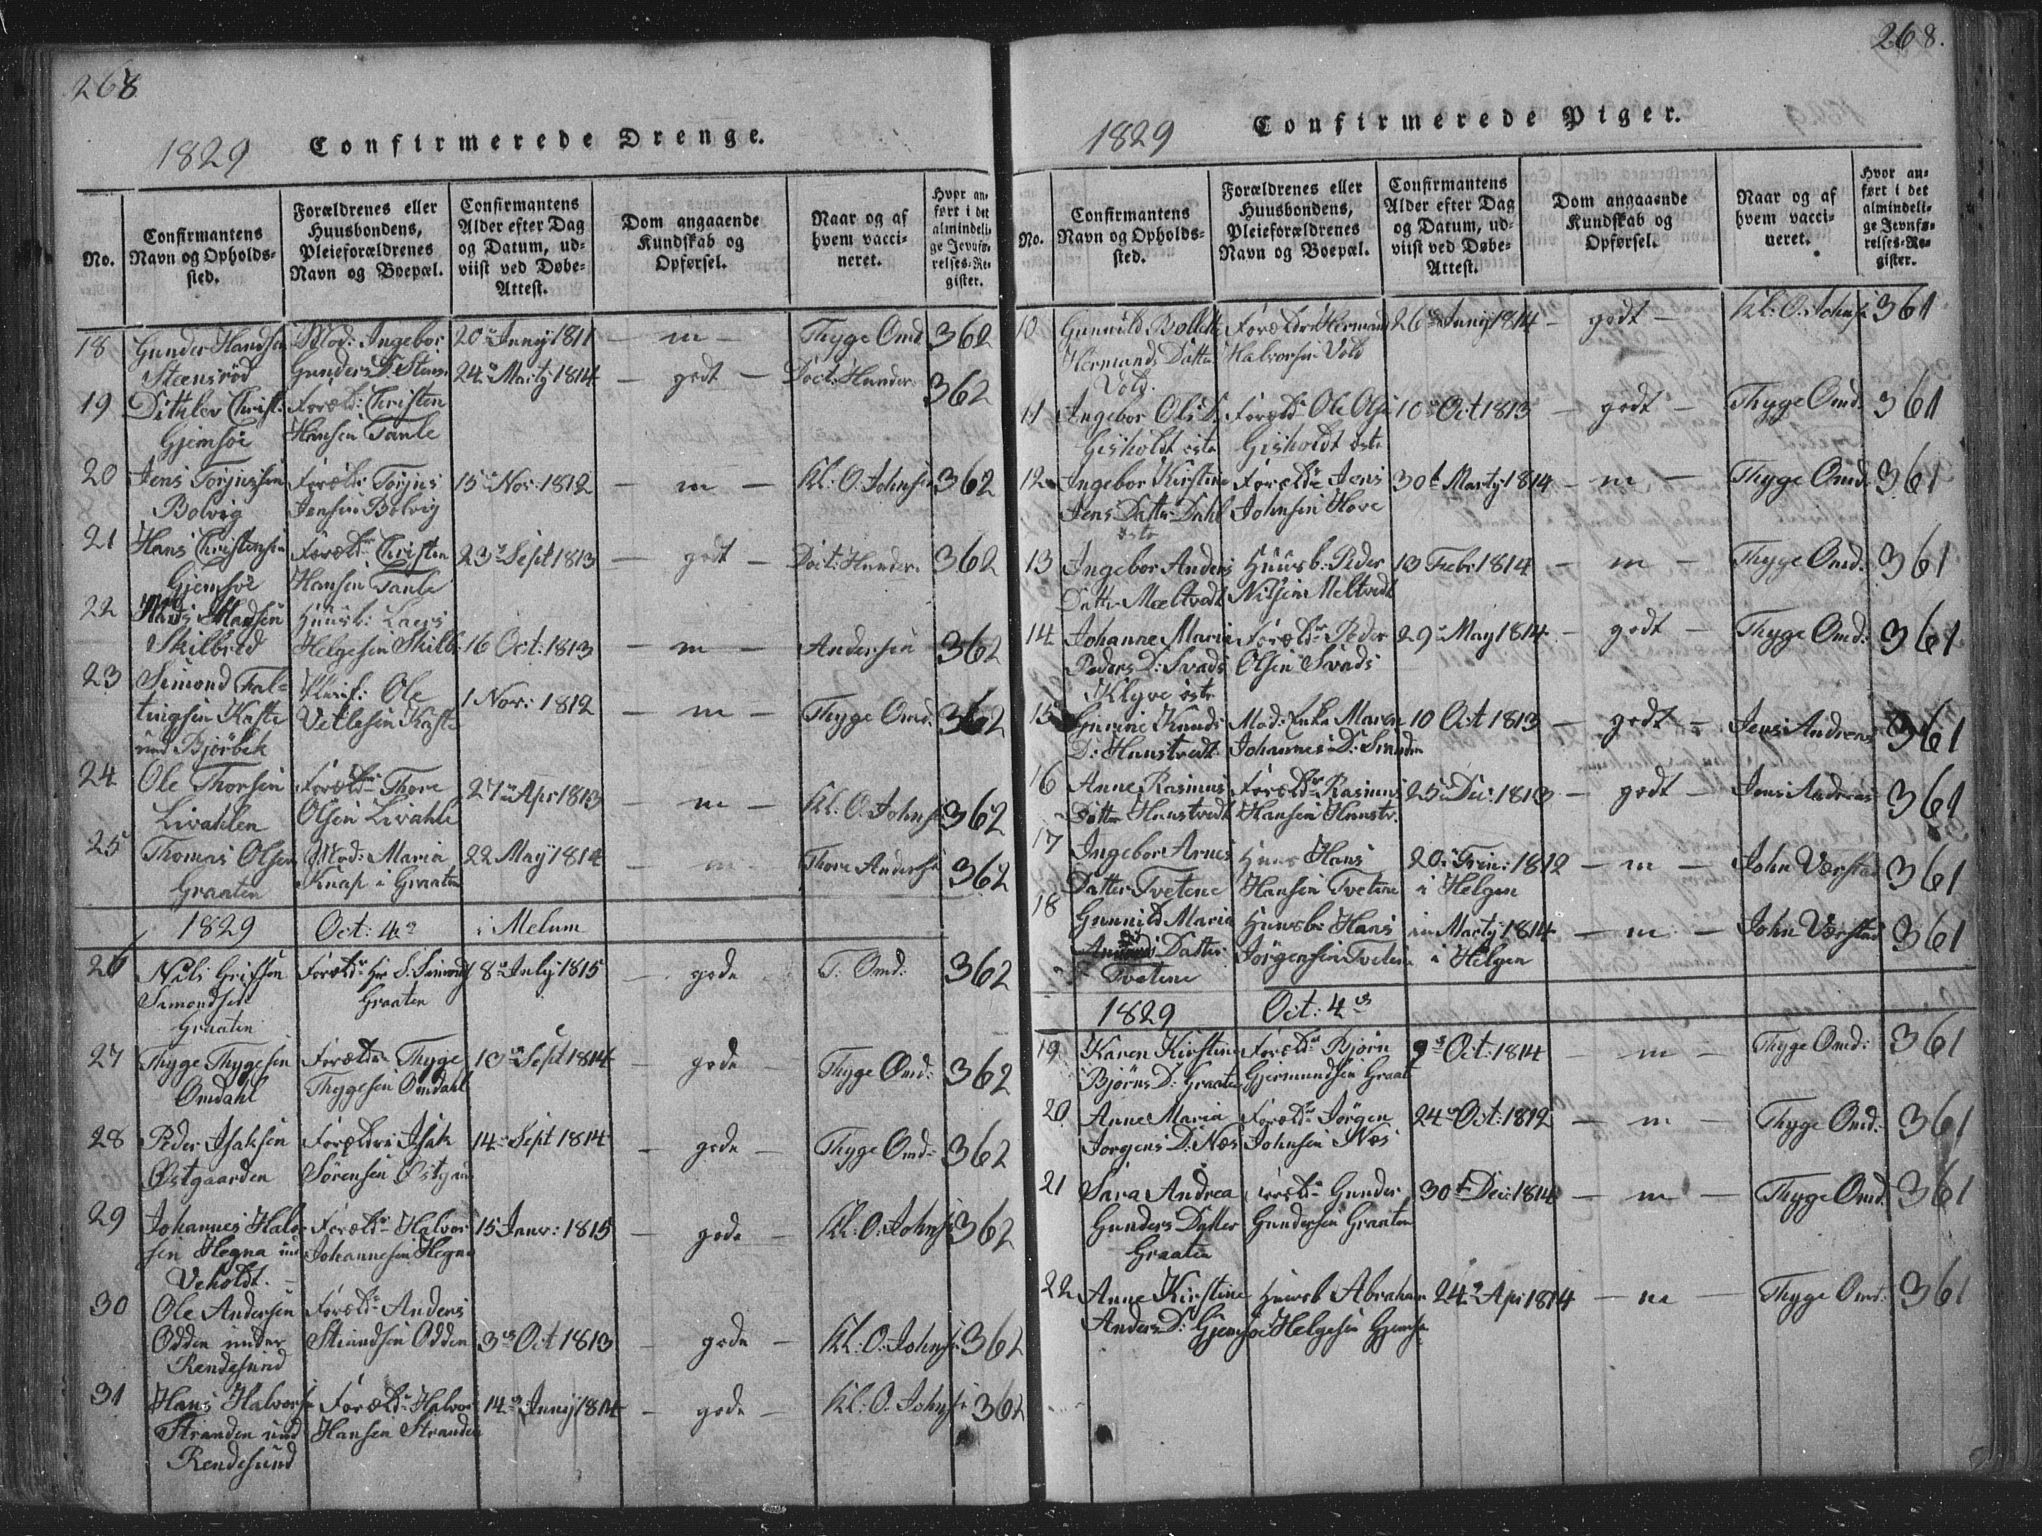 268
1829 Confirmerede Drenge.
No.
Confirmantens Navn og Opholdssted.
Forældrenes eller Huusbondens, Pleieforældrenes Navn og Boepæl.
Confirmantens Alder efter Dag og Datum, udviist ved Døbe-Attest.
Dom angaaende Kundskab og Opførsel.
Naar og af hvem vaccineret.
Hvor anført i det almindelige Jevnførelses-Register.
18 Gunder Handsen Mod: Ingebor 20 Juny 1811 — m — Thyge Omd. 362
Steensrød Gunders D.
19 Dithlev Christ: Foræld: Christen 24 Marty 1814 — godt — Doct: Hunder: 362
Gjemsøe Hansen Tanle
20 Jens Torjussen Foræld: Torjus 15 Nov: 1812 — m — Kl: O. Johnsen 362
Bolvig Jensen Bolvig
21 Hans Christensen Foræld: Christen 23 Sept 1813 — godt Doct: Hunder. 362
Gjemsøe Hansen Tanle
22 Mads Madsen Huusb: Lars 16 Oct: 1813 — m — Andersen 362
Skilbred Helgesen Skilb:
23 Simond Fal- Pleief: Ole 1 Nov: 1812 — m — Thyge Omd: 362
tingsen Kaste Vetlesen Kaste
und Bjørbek
24 Ole Thorsen Foræld: Thore 27 Apr 1813 — m — Kl. O. Johns: 362
Livahlen Olsen Livahle
25 Thomas Olsen Mod: Maria 22 May 1814 — m — Thore Anders: 362
Graaten Knap i Graaten
1829 Oct: 4 i Melum
26 Nils Grissen Foræld: Hr S. Simons 8 July 1815 — gode — T: Omd: 362
Simondsen Graaten
Graaten
27 Thyge Thygesen Foræld: Thyge 10 Sept 1814 — gode — Thyge Omd: 362
Omdahl Thygesen Omdahl
28 Peder Isaksen Foræld: Isak 14 Sept 1814 — gode — Thyge Omd: 362
Østgaarden Sørensen Østgaar
29 Johannes Halvor Foræld: Halvor 15 Janr: 1815 — gode — Kl: O: Johns 362
sen Hegna und Johannesen Hegna
Veholdt.
30 Ole Andersen Foræld: Anders 3 Oct 1813 — gode — Kl: O: Johns 362
Odden under Odden
Rendesund
31 Hans Halvorsen Foræld: Halvor 14 Juny 1814 — gode — Kl: O. Johns 362
Stranden und Hansen Stranden
Rendesund
268.
1829 Confirmerede Piger.
No.
Confirmantens Navn og Opholdssted.
Forældrenes eller Huusbondens, Pleieforældrenes Navn og Boepæl.
Confirmantens Alder efter Dag og Datum, udviist ved Døbe-Attest.
Dom angaaende Kundskab og Opførsel.
Naar og af hvem vaccineret.
Hvor anført i det almindelige Jevnførelses-Register.
10 Gunnild Bollette Forældre Herman 26 Juny 1814 — godt — Kl: O. Johns 361
Hermands Datter Halvorsen Vold
Vold.
11 Ingebor Ols D. Foræld: Ole Ols 10 Oct 1813 — godt — Thyge Omd. 361
Gisholdt østr Gisholdt østr
12 Ingebor Kirstine Foræld: Jens 30 Marty 1814 — m — Thyge Omd. 361
Jens Datter Dahl Johnsen Hove
østr
13 Ingebor Anders Huusb: Peder 13 Febr 1814 — m — Thyge Omd. 361
Datter Mæltvedt Nilsen Meltvedt
14 Johanne Maria Foræld: Peder 29 May 1814 — godt — Thyge Omd: 361
Peders D: Svads Olsen Svads
Klyve østr
15 Gurine Knuds Mod: Enke Maren 10 Oct 1813 — godt — Jens Anders 361
D: Haustvedt Johannes D:
16 Anne Rasmus Foræld: Rasmus 25 Dec: 1813 — godt — Jens Anders 361
Datter Haustvedt Hansen Haustv.
17 Ingebor Arnes Huus Hans 20 Trin: 1812 — m — John Værstad 361
Datter Tvetene Hansen Tvetene i Helgen
18 Gunnild Maria Huusb: Hans Marty 1814 — m — John Værstad 361
Datter Jørgensen Tvetene i Helgen
Tvetene
1829 Oct: 4
19 Karen Kirstine Foræld: Bjørn 9 Oct: 1814 — m — Thyge Omd: 361
Bjørns D: Graaten Gjermundsen Graat
20 Anne Maria Foræld: Jørgen 24 Oct: 1812 — m — Thyge Omd: 361
Jørgens D: Næs Johnsen Næs
21 Sara Andrea Foræld: Gunder 30 Dec: 1814 — m — Thyge Omd. 361
Gunders Datter Gundersen Graaten
Graaten
22 Anne Kirstine Huusb Abraham 24 Apr 1814 — m — Thyge Omd: 361
Anders D: Gjemsøe Helgesen Gjemsø